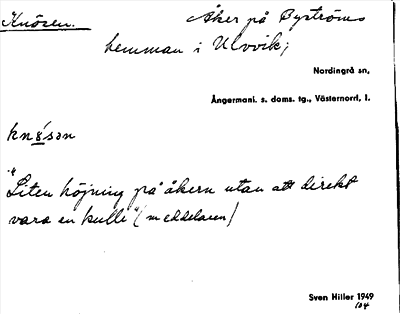 Knösen. Åker på Byströms
hemman i Ulvvik;
Nordingrå sn,
Ångermanl. s. doms. tg., Västernorrl. l.
knø̱´sən
"Liten höjning på åkern utan att direkt
vara en kulle" (meddelaren)
Sven Hiller 1949
104